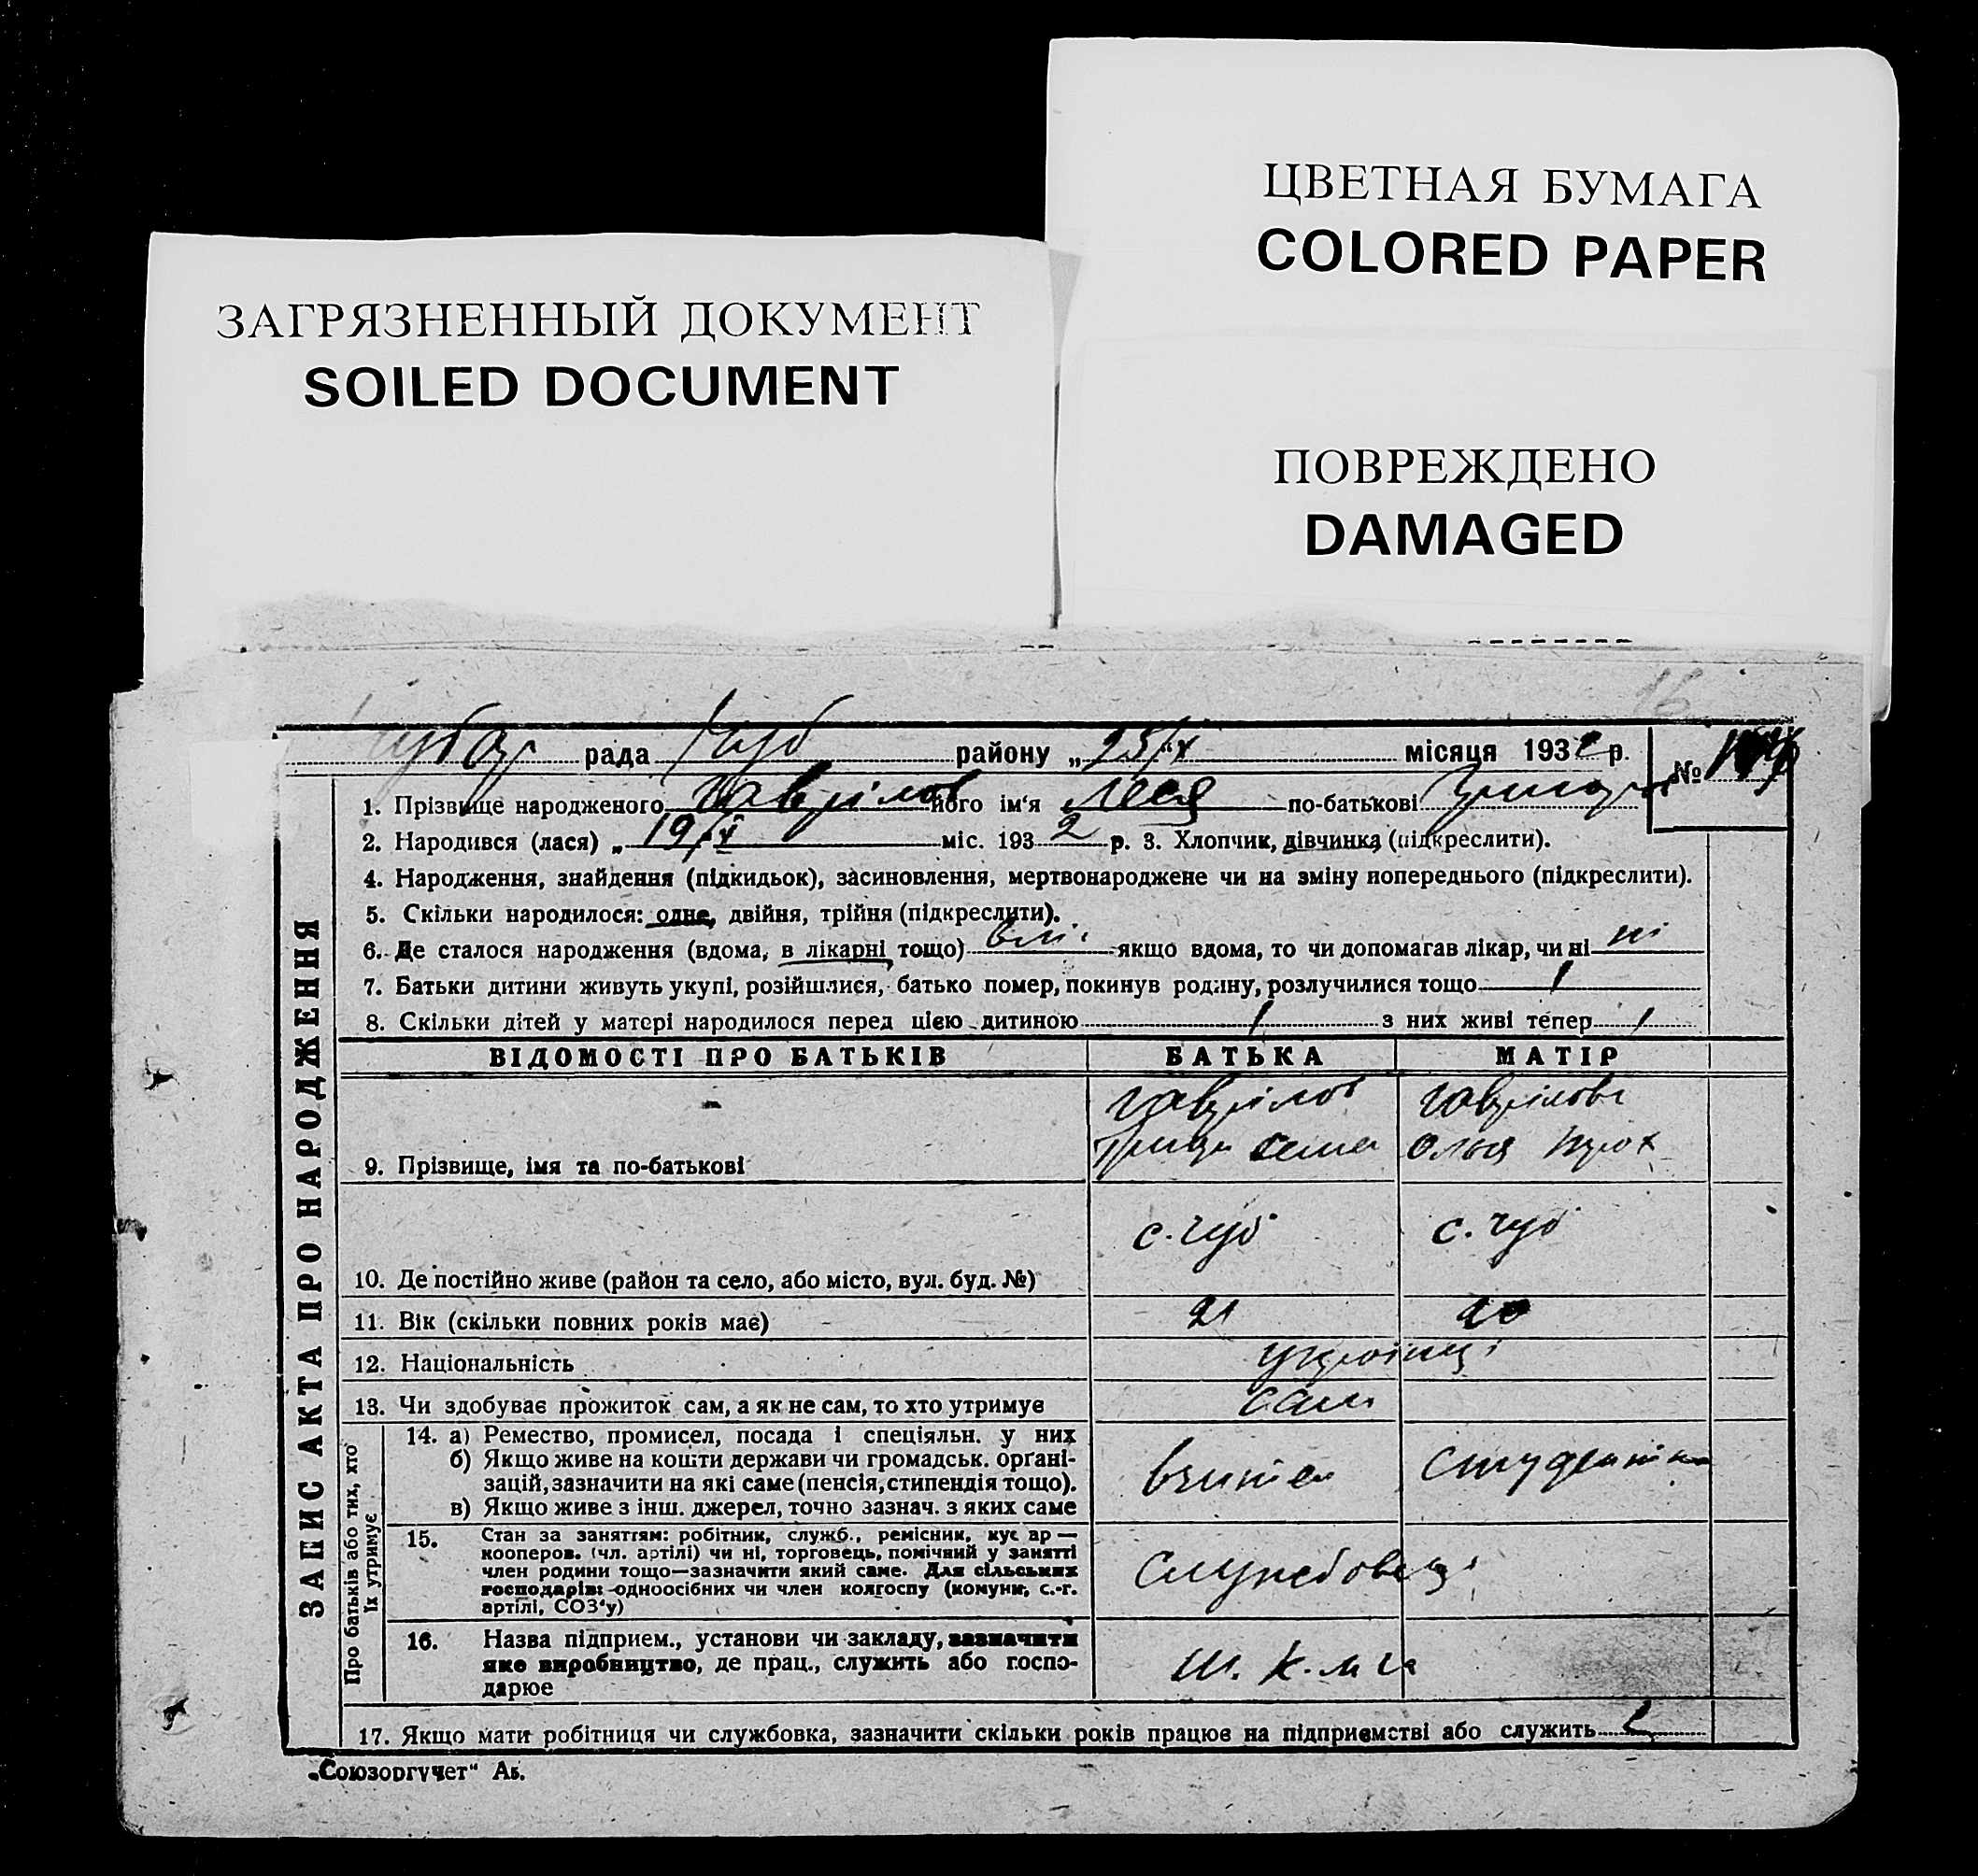 ЦВЕТНАЯ БУМАГА
COLORED PAPER
ЗАГРЯЗНЕННЫЙ ДОКУМЕНТ
SOILED DOCUMENT
ПОВРЕЖДЕНО
DAMAGED
16
рада Чуб району „25/X місяця 1932 р.
№
1. Прізвище народженого Гаврілов його ім‘я Леся по-батькові
2. Народився (лася) „ 19/X міс. 1932 р. 3. Хлопчик, дівчинка (підкреслити).
4. Народження, знайдення (підкидьок), засиновлення, мертвонароджене чи на зміну попереднього (підкреслити).
5. Скільки народилося: одне, двійня, трійня (підкреслити).
6. Де сталося народження (вдома, в лікарні тощо) якщо вдома, то чи допомагав лікар, чи ні ні
7. Батьки дитини живуть укупі, розійшлися, батько помер, покинув родину, розлучилися тощо
8. Скільки дітей у матері народилося перед цією дитиною 1 з них живі тепер 1
ЗАПИС АКТА ПРО НАРОДЖЕННЯ
ВІДОМОСТІ ПРО БАТЬКІВ БАТЬКА МАТІР
Гаврілов Гаврілова
Ольга
9. Прізвище, імя та по-батькові
с. Чуб с. Чуб
10. Де постійно живе (район та село, або місто, вул. буд. №)
11. Вік (скільки повних років має) 21 20
12. Національність українці
13. Чи здобуває прожиток сам, а як не сам, то хто утримує сам
Про батьків або тих, хто
їх утримує
14. а) Ремество, промисел, посада і спеціяльн. у них
б) Якщо живе на кошти держави чи громадськ. орґані-
зацій, зазначити на які саме (пенсія, стипендія тощо).
в) Якщо живе з інш. джерел, точно зазнач. з яких саме
студентка
15. Стан за заняттям: робітник, служб., ремісник, кустар —
кооперов. (чл. артілі) чи ні, торговець, помічний у занятті
член родини тощо—зазначити який саме. Для сільських
господарів: одноосібних чи член колгоспу (комуни, с.-г.
артілі, СОЗ‘у)
службовці
16. Назва підприєм., установи чи закладу, зазначити
яке виробництво, де прац., служить або госпо-
дарює
17. Якщо мати робітниця чи службовка, зазначити скільки років працює на підприємстві або служить
„Союзоргучет“ Аб.